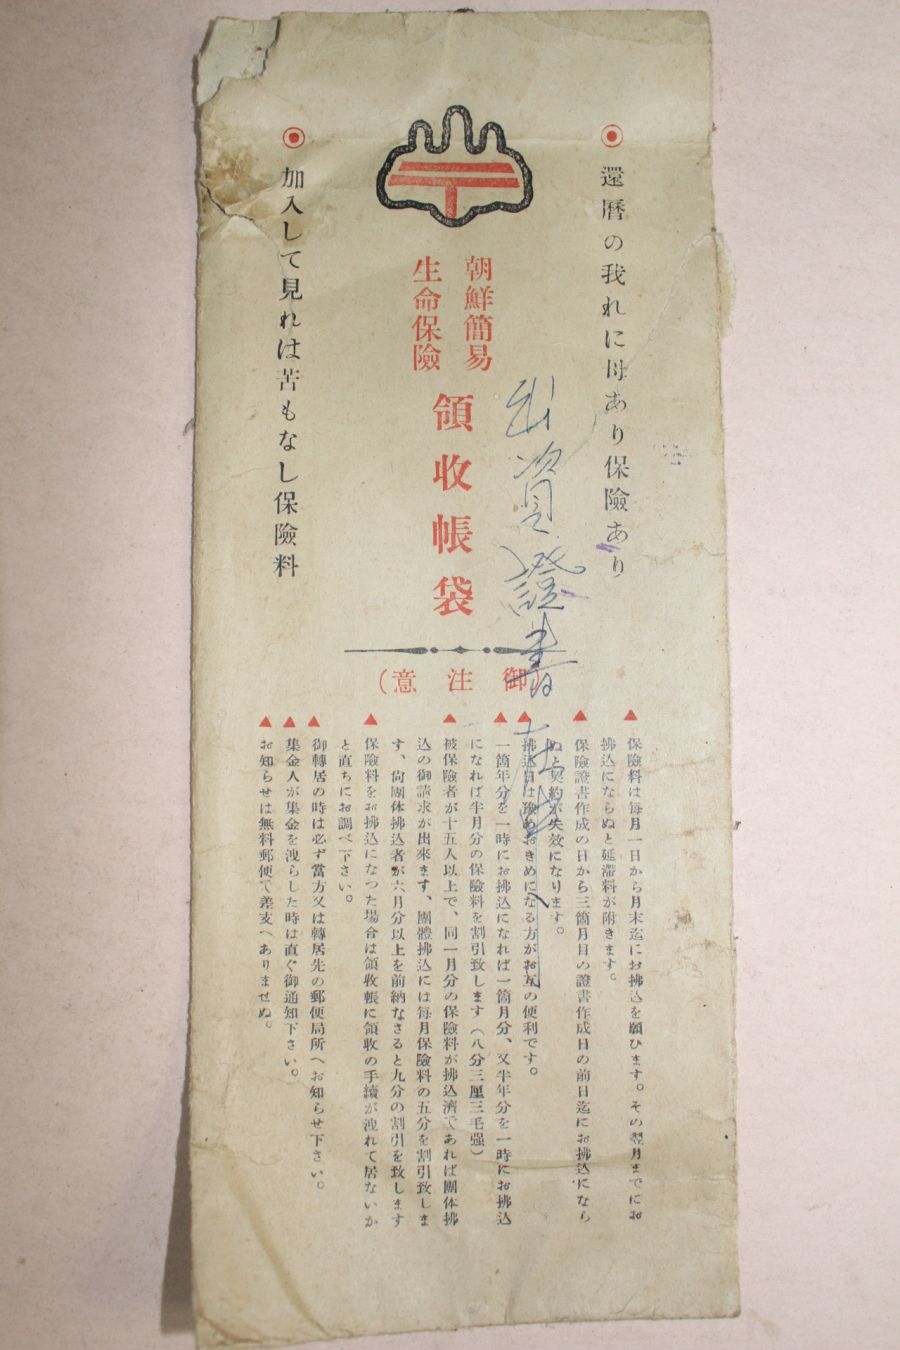 ◉ 還曆の我れに母あり保險あり
朝鮮簡易
生命保險
領收帳袋
◉ 加入して見れは苦もなし保險料
出資證書
(御注意)
▲保險料は每月一日から月末迄にお拂込を願ひます。その翌月までにお
拂込にならぬと延滯料が附きます。
▲保險證書作成の日から三箇月目の證書作成日の前日迄にお拂込になら
ぬと契約が失效になります。
▲拂込日は豫めおきめになる方がお互の便利です。
▲一箇年分を一時にお拂込になれば一箇月分、又半年分を一時にお拂込
になれば半月分の保險料を割引致します(八分三厘三毛强)
▲被保險者が十五人以上で、同一月分の保險料が拂込濟であれば團体拂
込の御請求が出來ます、團體拂込には每月保險料の五分を割引致しま
す、尙團体拂込者が六月分以上を前納なさると九分の割引を致します
▲保險料をお拂込になつた場合は領收帳に領收の手續が洩れて居ないか
と直ちにお調べ下さい。
▲御轉居の時は必ず當方又は轉居先の郵便局所へお知らせ下さい。
▲集金人が集金を洩らした時は直ぐ御通知下さい。
▲お知らせは無料郵便で差支へありませぬ。